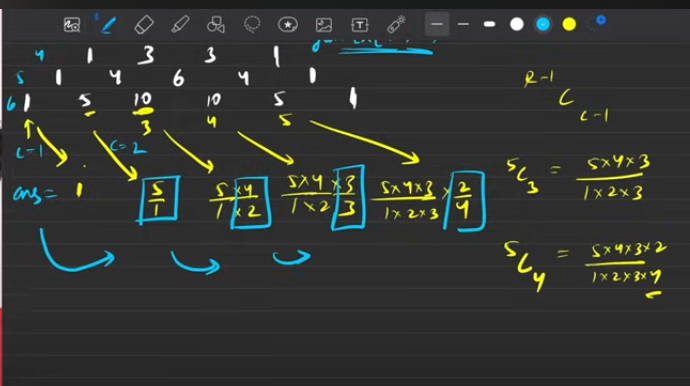 4 1 3 3 1
5 1 4 6 4 1
6 1 5 10 10 5 1
3 4 5
c=1 c=2
ans = 1 5/1 5/1 × 4/2 5×4/1×2 × 3/3 5×4×3/1×2×3 × 2/4
R-1 C c-1
5C3 = 5×4×3/1×2×3
5C4 = 5×4×3×2/1×2×3×4